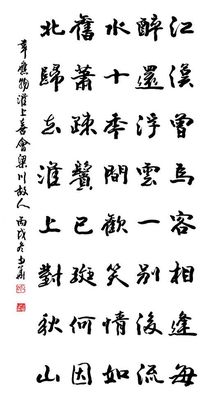 江漢曾為客相逢每
醉還浮雲一別後流
水十年間歡笑情如
舊蕭疎鬢已斑何因
北歸去淮上對秋山
韋應物淮上喜會梁川故人丙戌冬